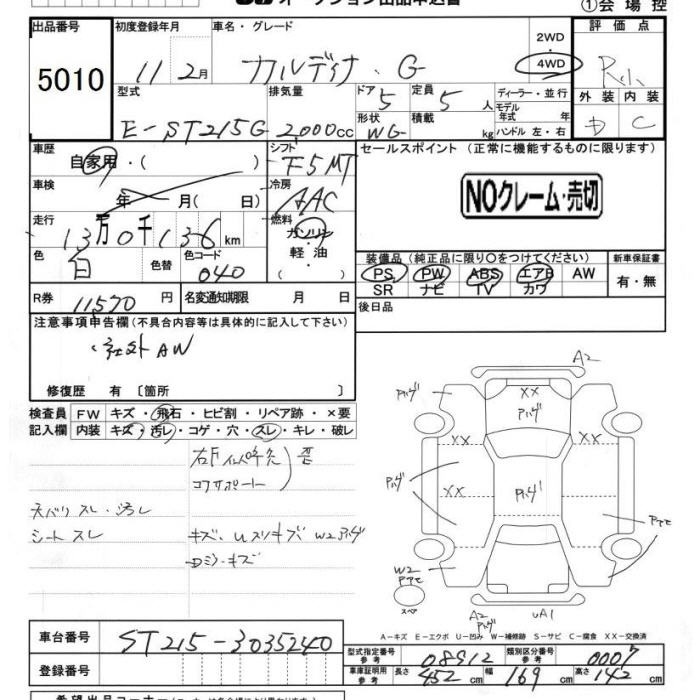 オークション出品申込書
①会場控
出品番号
5010
初度登録年月
11 2月
車名・グレード
カルディナ G
2WD
・
4WD
評価点
型式
E-ST215G
排気量
2000cc
ドア
5
定員
5人
ディーラー・並行
モデル年式 年
ハンドル 左・右
形状
WG
積載
kg
外装
D
内装
C
車歴
自家用・( )
シフト
F5MT
車検
年 月( 日)
冷房
AAC
走行
13万0千136km
燃料
ガソリン
軽油
・
( )
色
白
色替
色コード
040
R券
11570円
名変通知期限 月 日
セールスポイント(正常に機能するものに限ります)
NOクレーム・売切
装備品(純正品に限り○をつけてください)
PS PW ABS エアB AW
SR ナビ TV カワ
新車保証書
有・無
後日品
注意事項申告欄(不具合内容等は具体的に記入して下さい)
社外AW
修復歴 有〔箇所 〕
検査員記入欄
FW キズ・飛石・ヒビ割・リペア跡・×要
内装 キズ・汚レ・コゲ・穴・スレ・キレ・破レ
コアサポート
天バリ スレ・汚レ
シート スレ
A2
XX
XX
XX
XX
W2
スペア
A2
UA1
A−キズ E−エクボ U−凹み W−補修跡 S−サビ C−腐食 XX−交換済
車台番号
ST215-3035240
登録番号
型式指定番号
参考
08912
類別区分番号
参考
0007
車庫証明用
参考
長さ 452cm
幅 169cm
高さ 142cm
希望出品コーナー